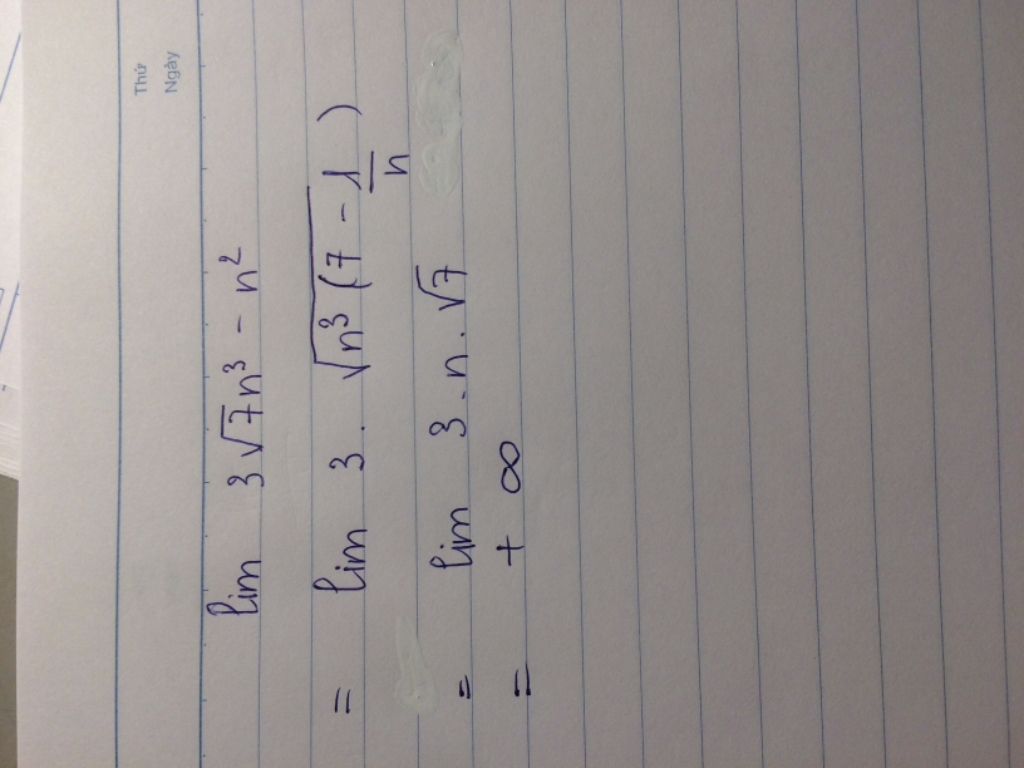 Thứ
Ngày
lim 3√7n³ - n²
= lim 3. √n³(7 - 1/n)
= lim 3.n.√7
= + ∞